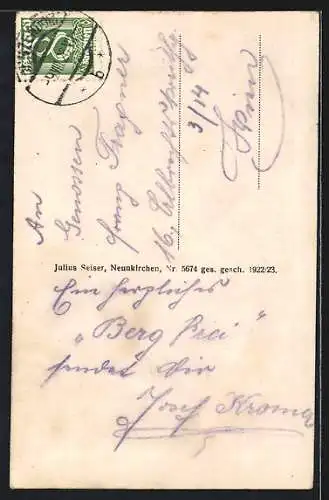 An
Genossen
Franz Tragner
16.,
3/14
Wien
Julius Seiser, Neunkirchen, Nr. 5674 ges. gesch. 1922/23.
Ein herzliches
„Berg frei"
sendet Dir
Josef Kroma